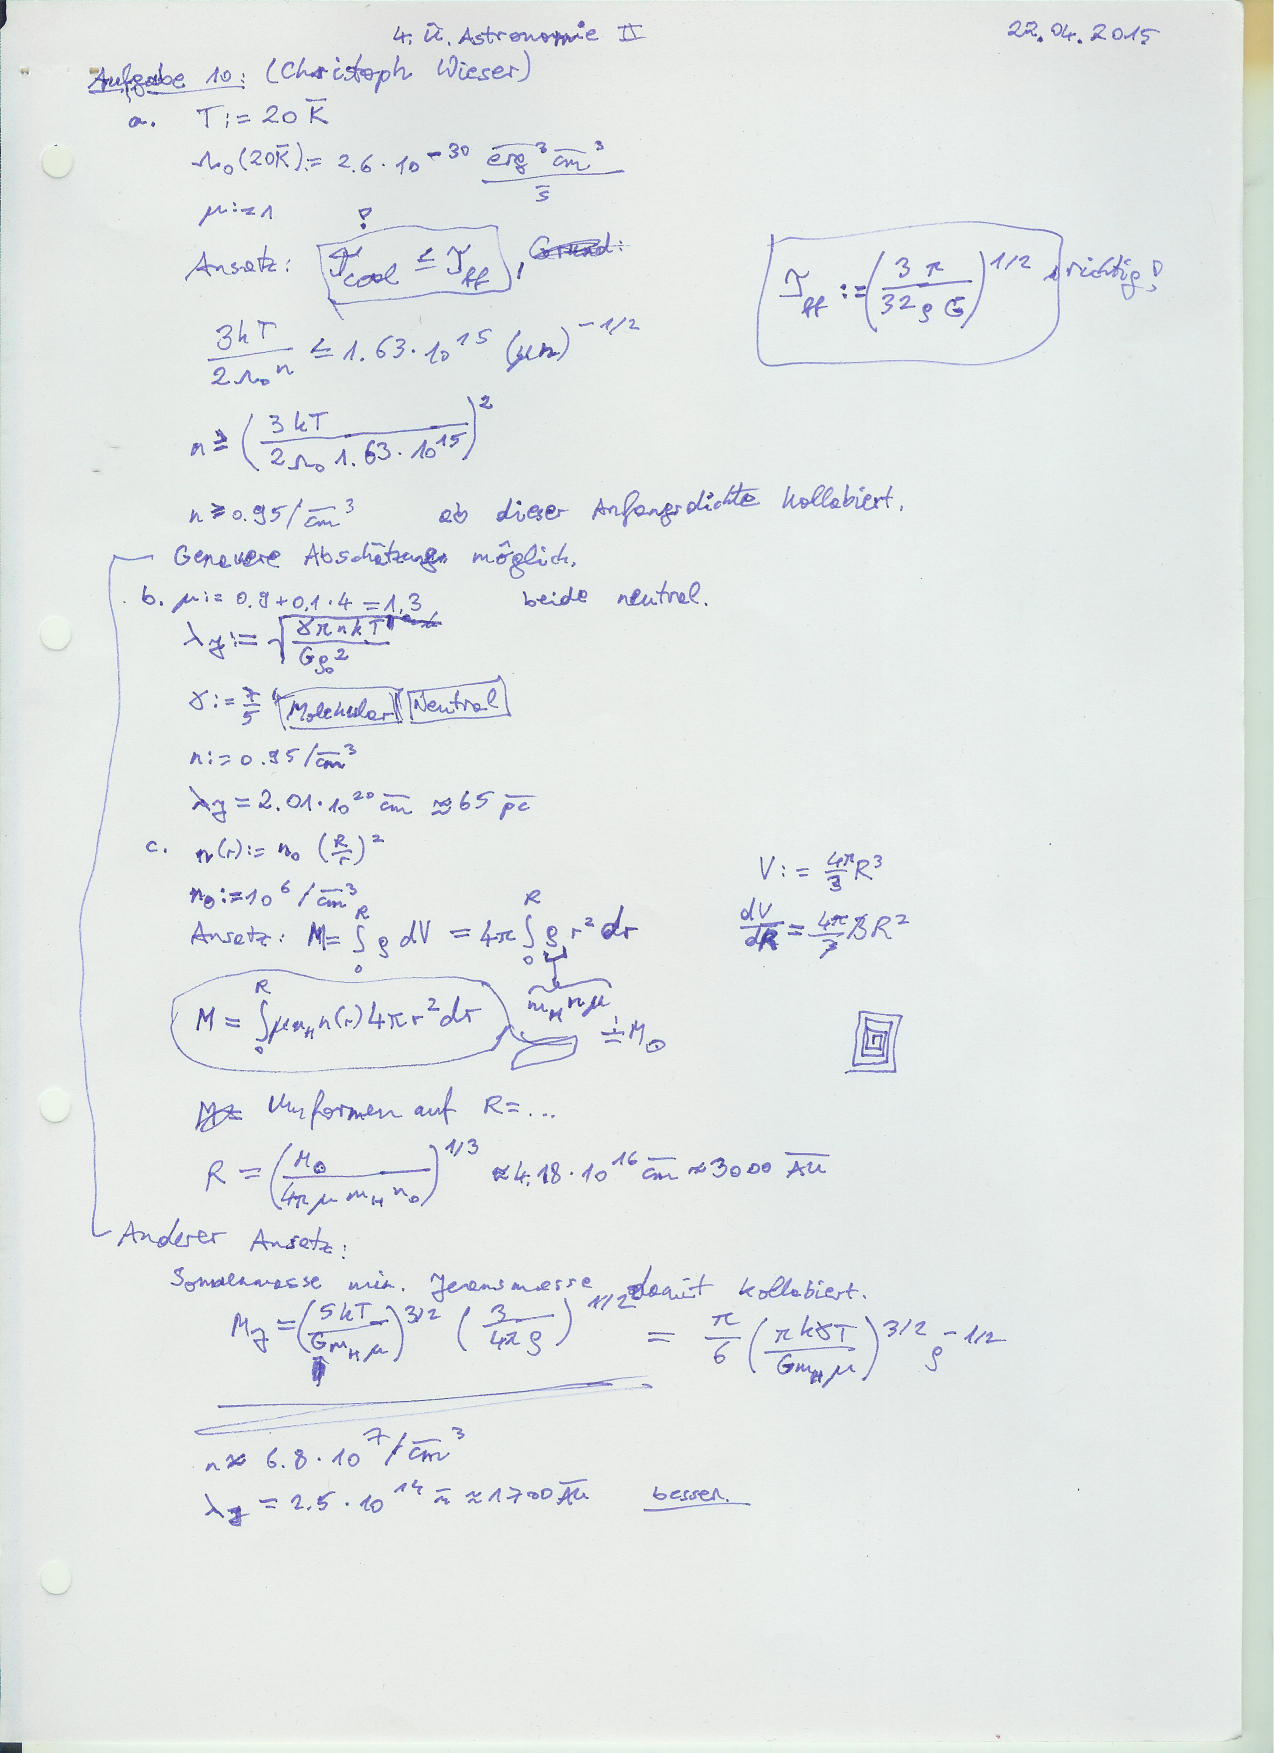 4. Ü. Astronomie II 22.04.2015
Aufgabe 10: (Christoph Wieser)
a. T := 20 K̅
Λ₀(20K̅) := 2.6 · 10⁻³⁰ e̅r̅g̅³ c̅m̅³ / s̅
μ := 1
Ansatz: τ_cool ≤ τ_ff !, Grund:
τ_ff := (3π / 32ρG)^1/2 richtig!
3kT / 2Λ₀n ≤ 1.63 · 10¹⁵ (μn)^-1/2
n ≥ (3kT / 2Λ₀ 1.63 · 10¹⁵)²
n ≥ 0.95/c̅m̅³ ab dieser Anfangsdichte kollabiert.
Genauere Abschätzung möglich.
b. μ := 0.9 + 0.1 · 4 = 1,3 beide neutral.
λ_J := √(γπnkT / Gρ₀²)
γ := 7/5 Molecular Neutral
n := 0.95/c̅m̅³
λ_J = 2.01 · 10²⁰ c̅m̅ ≈ 65 p̅c̅
c. n(r) := n₀ (R/r)²
V := 4π/3 R³
n₀ := 10⁶/c̅m̅³
Ansatz: M = ∫₀^R ρ dV = 4π ∫₀^R ρ r² dr
dV/dR = 4π/3 3R²
m_H n μ
M = ∫₀^R μ m_H n(r) 4π r² dr ≐ M☉
M= Umformen auf R = ...
R = (M☉ / 4π μ m_H n₀)^1/3 ≈ 4.18 · 10¹⁶ c̅m̅ ≈ 3000 A̅U̅
Anderer Ansatz:
Sonnenmasse min. Jeansmasse damit kollabiert.
M_J = (5kT / G m_H μ)^3/2 (3 / 4πρ)^1/2 = π/6 (πkγT / G m_H μ)^3/2 ρ^-1/2
n ≈ 6.8 · 10⁷/c̅m̅³
λ_J = 2.5 · 10¹⁴ m̅ ≈ 1700 A̅U̅ besser.